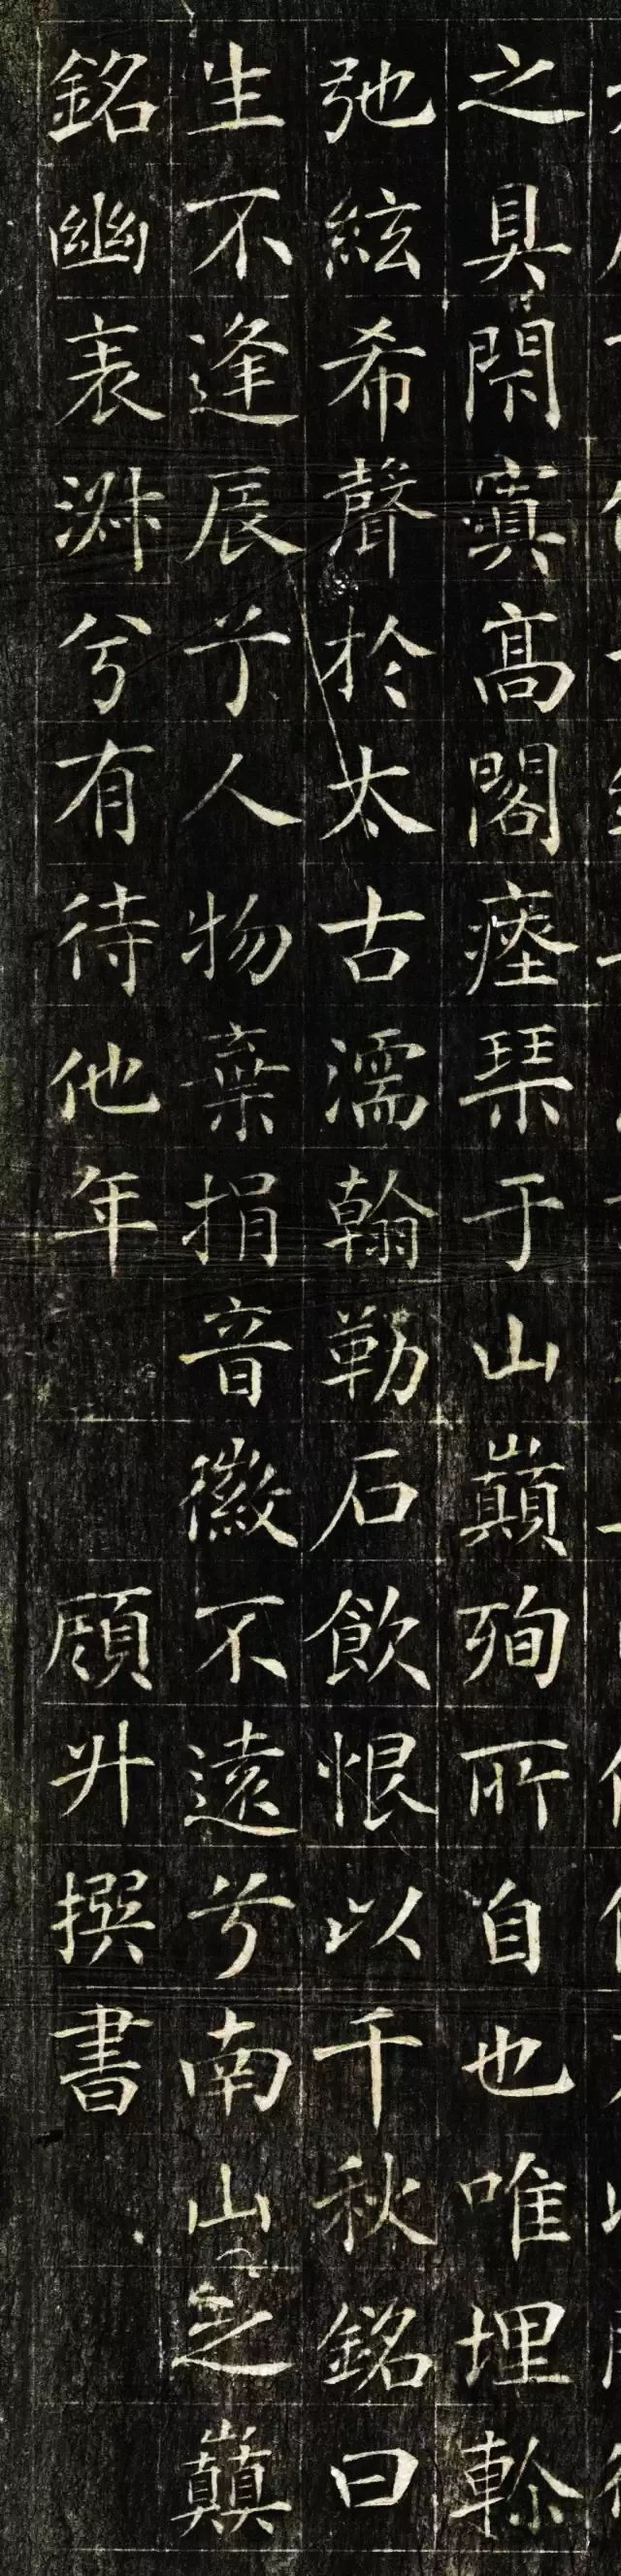 之具閑寘高閣瘞琴于山巔殉所自也唯埋軫
弛絃希聲於太古濡翰勒石飲恨以千秋銘曰
生不逢辰兮人物棄捐音徽不遠兮南山之巔
銘幽表淑兮有待他年 顧升撰書